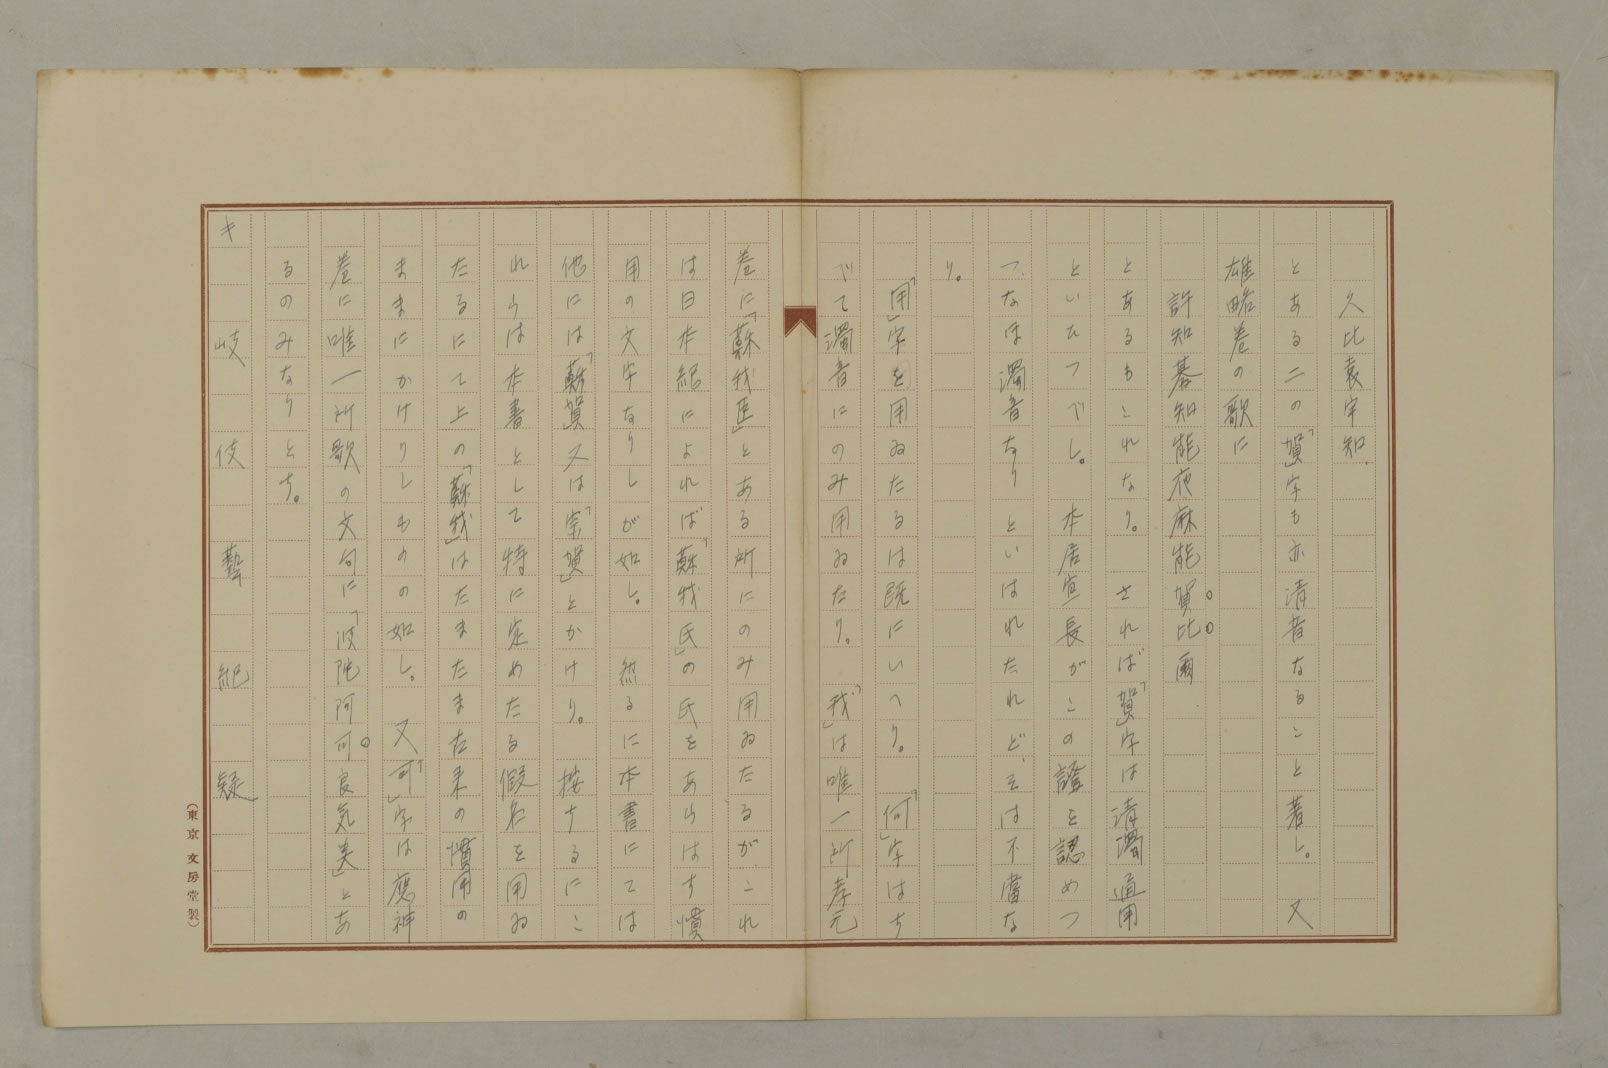 久比袁宇知、
とある二の「賀」字も亦清音なること著し。又
雄略巻の歌に
許知碁知能夜麻能賀比爾
とあるもこれなり。されば「賀」字は清濁通用
といひつべし。本居宣長がこの證を認めつ
つ、なほ濁音なりといはれたれど、そは不當な
り。
「用」字を用ゐたるは既にいへり。「何」字はす
べて濁音にのみ用ゐたり。「我」は唯一所孝元
巻に「蘇我臣」とある所にのみ用ゐたるが、これ
は日本紀によれば「蘇我氏」の氏をあらはす慣
用の文字なりしが如し。然るに本書にては
他には「蘇賀」又は「宗賀」とかけり。按ずるにこ
れらは本書として特に定めたる假名を用ゐ
たるにて上の「蘇我」はたまたま古来の慣用の
ままにかけりしものの如し。又「可」字は應神
巻に唯一所歌の文句に「波陀阿可良気美」とあ
るのみなりとす。
キ 岐 伎 藝 紀 疑
(東京 文房堂製)